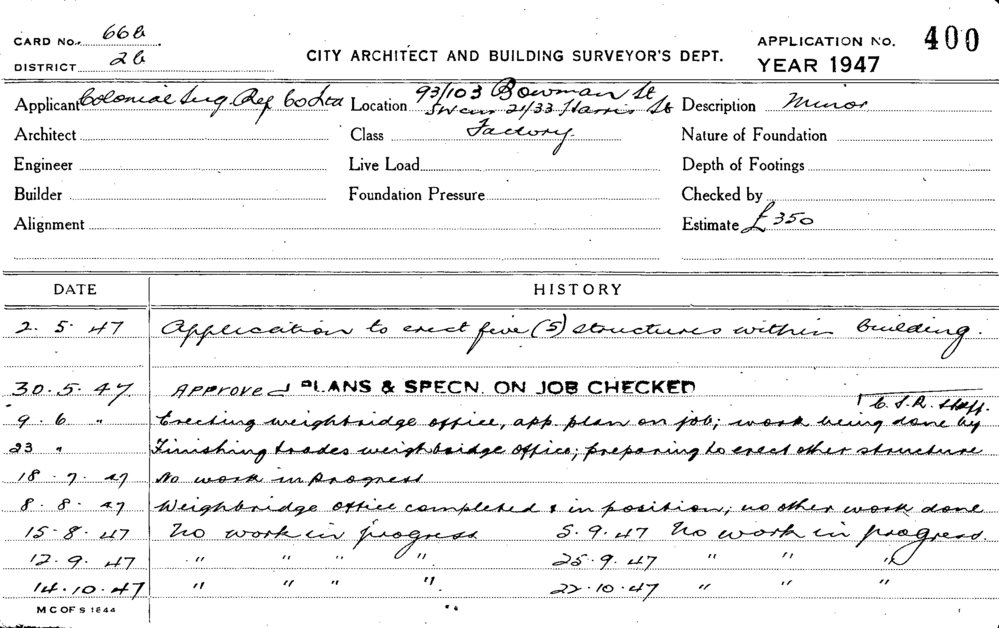 CARD No. 66b
DISTRICT 2b
CITY ARCHITECT AND BUILDING SURVEYOR'S DEPT.
APPLICATION No. 400
YEAR 1947
Applicant Colonial Sug. Ref Co Ltd Location 93/103 Bowman St
21/33 Harris St
Description Minor
Architect Class Factory. Nature of Foundation
Engineer Live Load Depth of Footings
Builder Foundation Pressure Checked by
Alignment Estimate £350
DATE HISTORY
2. 5. 47 Application to erect five (5) structures within building.
30. 5. 47. APPROVED PLANS & SPECN. ON JOB CHECKED
C.S.R. Staff.
9. 6 " Erecting weighbridge office, app. plan on job; work being done by
23 " Finishing trades weighbridge office; preparing to erect other structure
18. 7. 47 No work in progress
8. 8. 47 Weighbridge office completed & in position; no other work done
15-8. 47 No work in progress 5. 9. 47 No work in progress.
12. 9. 47 " " " " 25. 9. 47 " " "
14. 10. 47 " " " " 22. 10. 47 " " "
M C OF S 1844